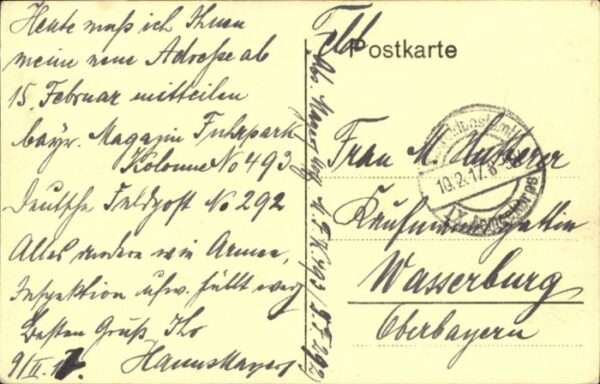 Heute muß ich Ihnen
meine neue Adresse ab
15. Februar mitteilen
bayr. Magazin Fuhrpark
Kolonne No 493
Deutsche Feldpost No 292
Alles andere wie Armee,
Inspektion usw. fällt weg
Besten Gruß Ihr
9/II.17. Hanns Mayer
Feld Postkarte
Frau M.
10.2.17.
Kaufmannsgattin
Wasserburg
Oberbayern